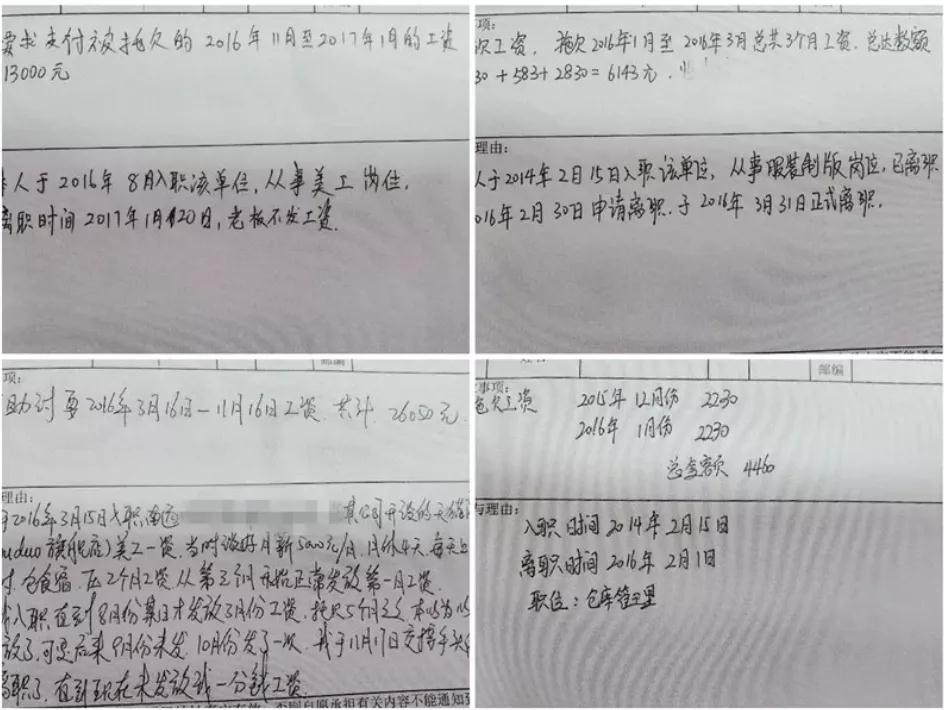 要求支付被拖欠的 2016年11月至2017年1月的工资
13000元
人于2016年8月入职该单位,从事美工岗位.
离职时间2017年1月20日,老板不发工资.
项:
欠工资, 拖欠2016年1月至2016年3月总共3个月工资.总达数额
30+583+2830=6143元.
理由:
人于2014年2月15日入职该单位, 从事服装制版岗位,已离职
016年2月30日申请离职.于2016年3月31日正式离职.
邮编
项:
助讨要2016年3月16日-11月16日工资.共计.26050元.
理由:
于2016年3月15日入职 其公司开设的天猫
duo旗舰店)美工一资.当时谈好月薪5000元/月.月休4天.每天上
包食宿.压2个月工资.从第三个月开始正常发放第一月工资.
入职.直到8月份某日才发放3月份工资.拖欠5个月之久.本以为以
放了.可是后来9月份未发.10月份发了一次.我于11月17日交接手头
离职了.直到现在未发放我一分钱工资.
自愿承担有关内容不能通知到
邮编
事项:
拖欠工资 2015年12月份 2230
2016年 1月份 2230
总金额 4460
与理由:
入职时间2014年2月15日
离职时间2016年2月1日
职位:仓库管理